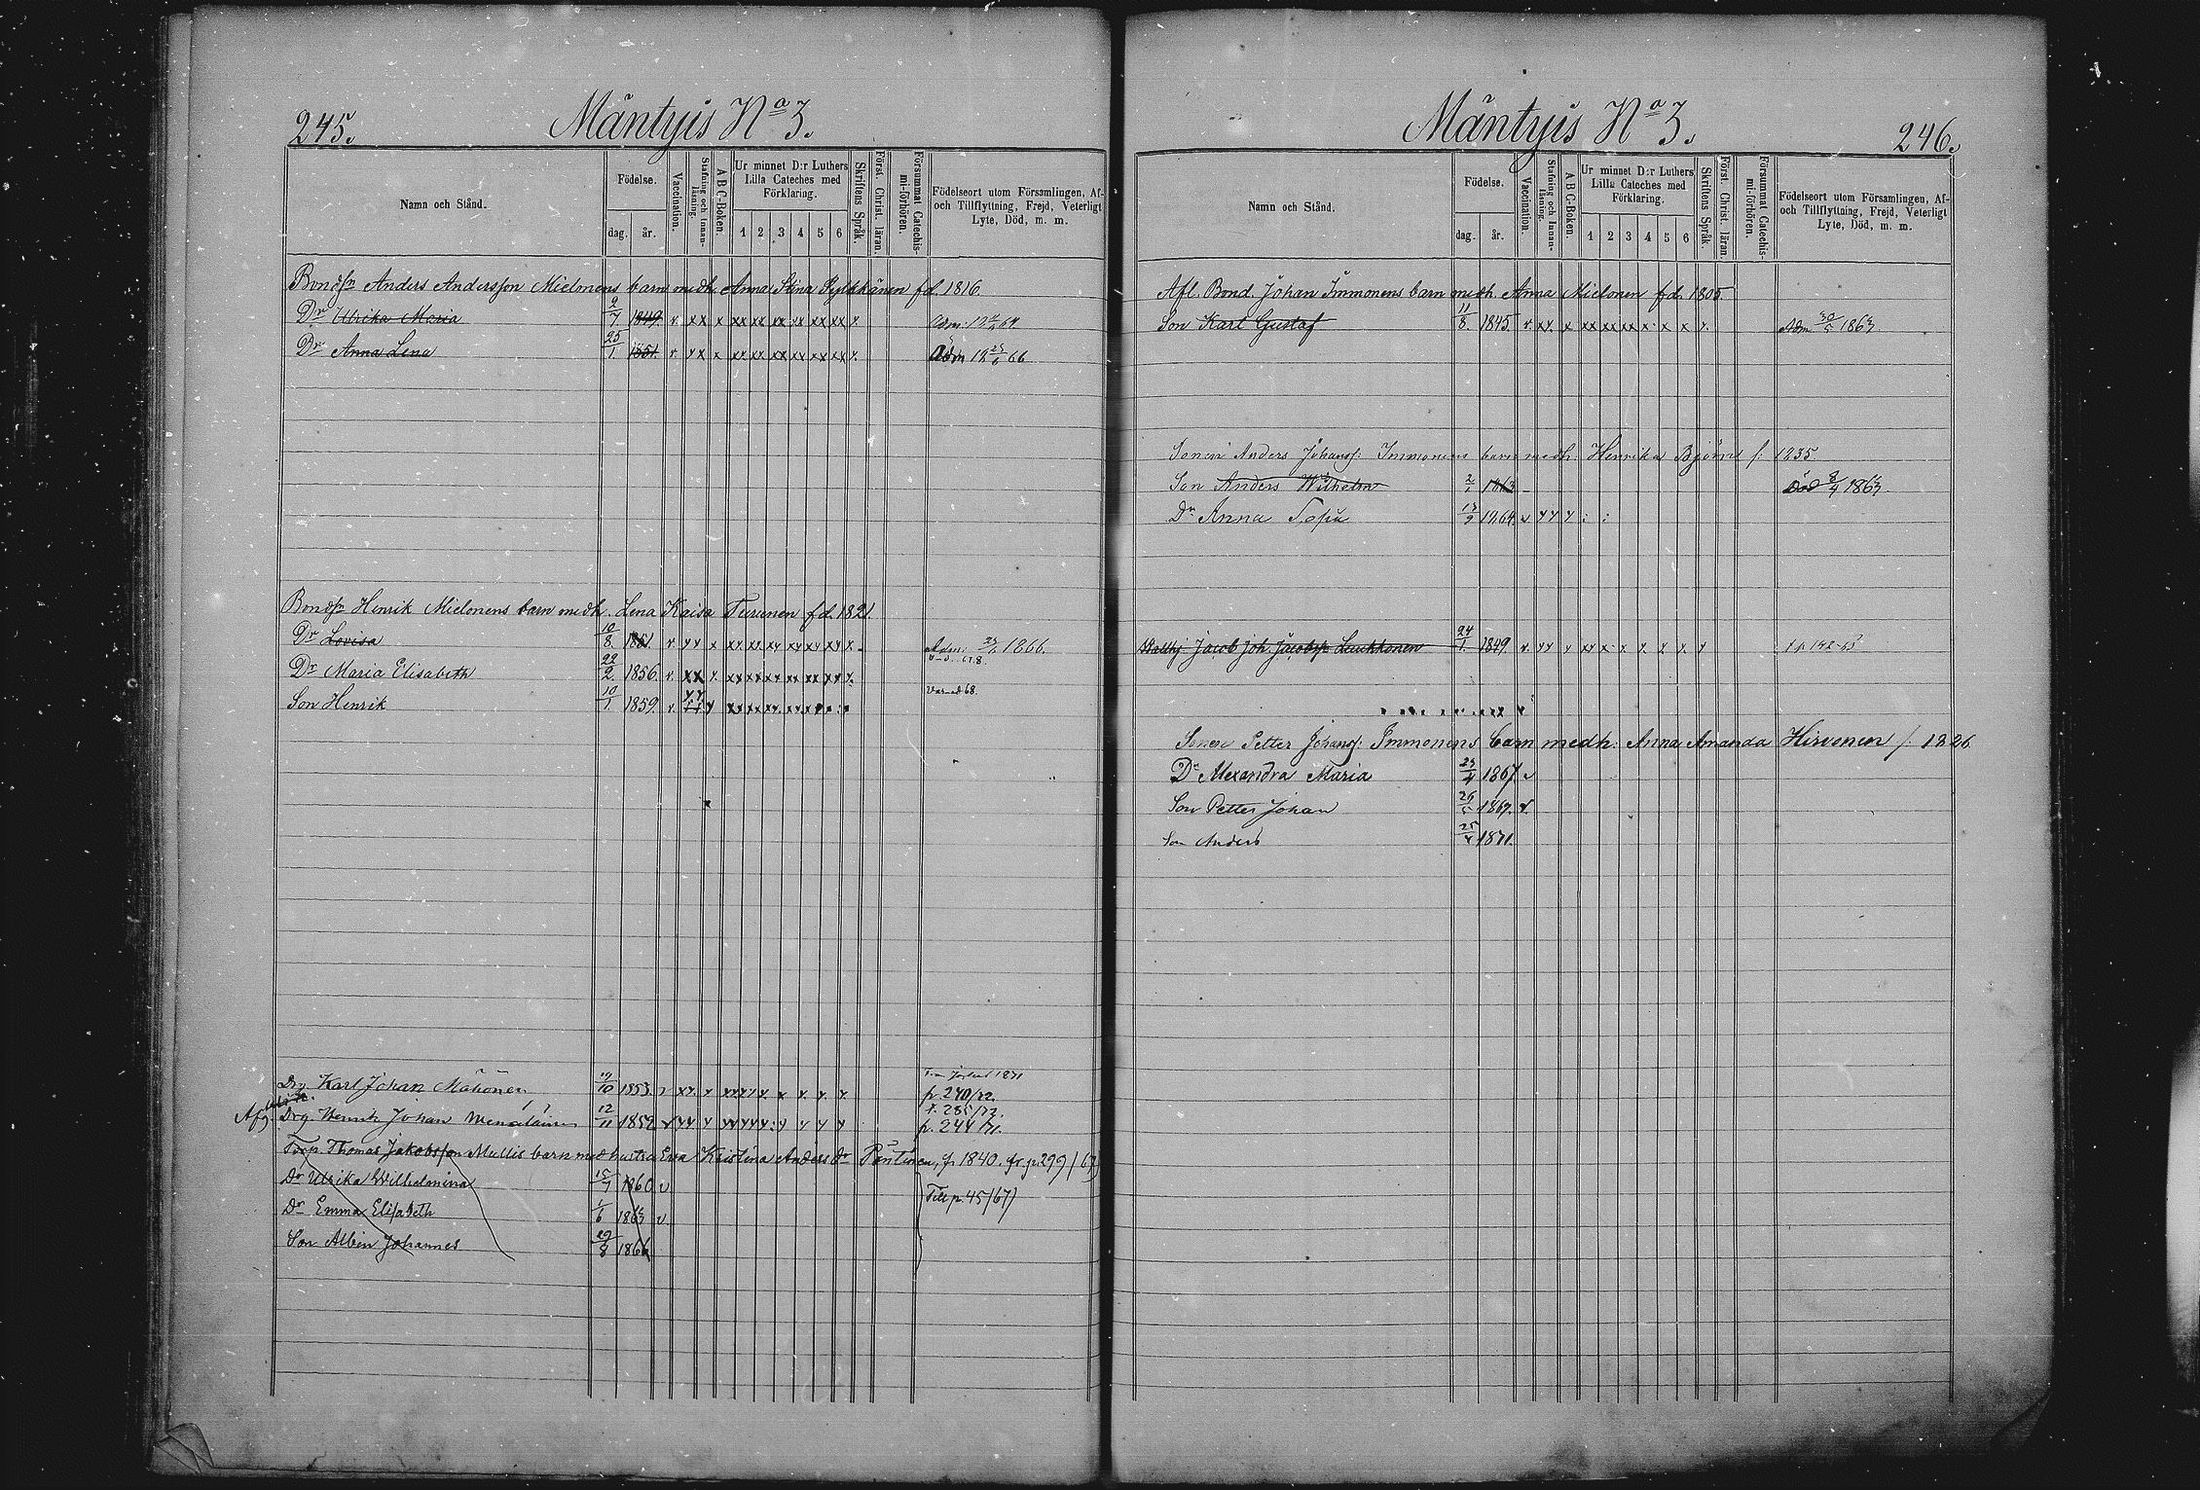 245.
Mäntyis No 3.
Namn och Stånd.
Födelse.
dag.
år.
Vaccination.
Stafning och Innan-läsning.
A B C-Boken.
Ur minnet D:r Luthers
Lilla Cateches med
Förklaring.
1 2 3 4 5 6
Skriftens Språk.
Först. Christ. läran.
Försummat Catechis-mi-förhören.
Födelseort utom Församlingen, Af-
och Tillflyttning, Frejd, Veterligt
Lyte, Död, m. m.
Anders Andersson Mielonens barn medh. Anna Stina fd. 1816.
Dr Ulrika Maria 2/7 1849. v xx x xx xx xx xx xx xx x.
Dr Anna Lena 25/1 1851. v xx x xx xx xx xx xx xx x. Adm 18 66
Henrik Mielonens barn medh. Lena Kaisa Turunen fd. 1821.
Dr Lovisa 10/8 1851. Adm. 1866.
Dr Maria Elisabeth 22/2 1856. v. xx x.
Son Henrik 10/1 1859. v. 68.
Drg. Karl Johan 1853 1871
p. 240/72.
Afg. Drg. Henrik Johan 12/11 1859 p. 285/73.
p. 244/71.
Torp. Thomas Jakobsson Mullis barn med hustru Eva Kristina Anders Dr Pöntinen, f. 1840. fr. p. 299/67)
Dr Ulrika Wilhelmina 15/7 1860 v Till p. 45/67)
Dr Emma Elisabeth 1/6 1863 v
Son Albin Johannes 29/8 1866
Mäntyis No 3.
246.
Namn och Stånd.
Födelse.
dag.
år.
Vaccination.
Stafning och Innan-läsning.
A B C-Boken.
Ur minnet D:r Luthers
Lilla Cateches med
Förklaring.
1 2 3 4 5 6
Skriftens Språk.
Först. Christ. läran.
Försummat Catechis-mi-förhören.
Födelseort utom Församlingen, Af-
och Tillflyttning, Frejd, Veterligt
Lyte, Död, m. m.
Afl. Bond. Johan Immonens barn medh. Anna Mielonen fd. 1805.
Son Karl Gustaf 11/8 1845. v xx x xx xx xx x x x x. Adm 30/5 1863
Sonen Anders Johanss: Immonens barn medh. Henrika Björn f. 1835
Son Anders Wilhelm 2/1 1863 – Död 8/4 1863.
Dr Anna Sofia 13/9 1864. v
Jacob Joh. Jacobsson Luukkonen 24/1 1849
Sonen Petter Johanss: Immonens barn medh: Anna Amanda Hirvonen f. 1826
Dr Alexandra Maria 23/4 1867 v
Son Petter Johan 26/5 1869. v.
Son Anders 25/4 1871.